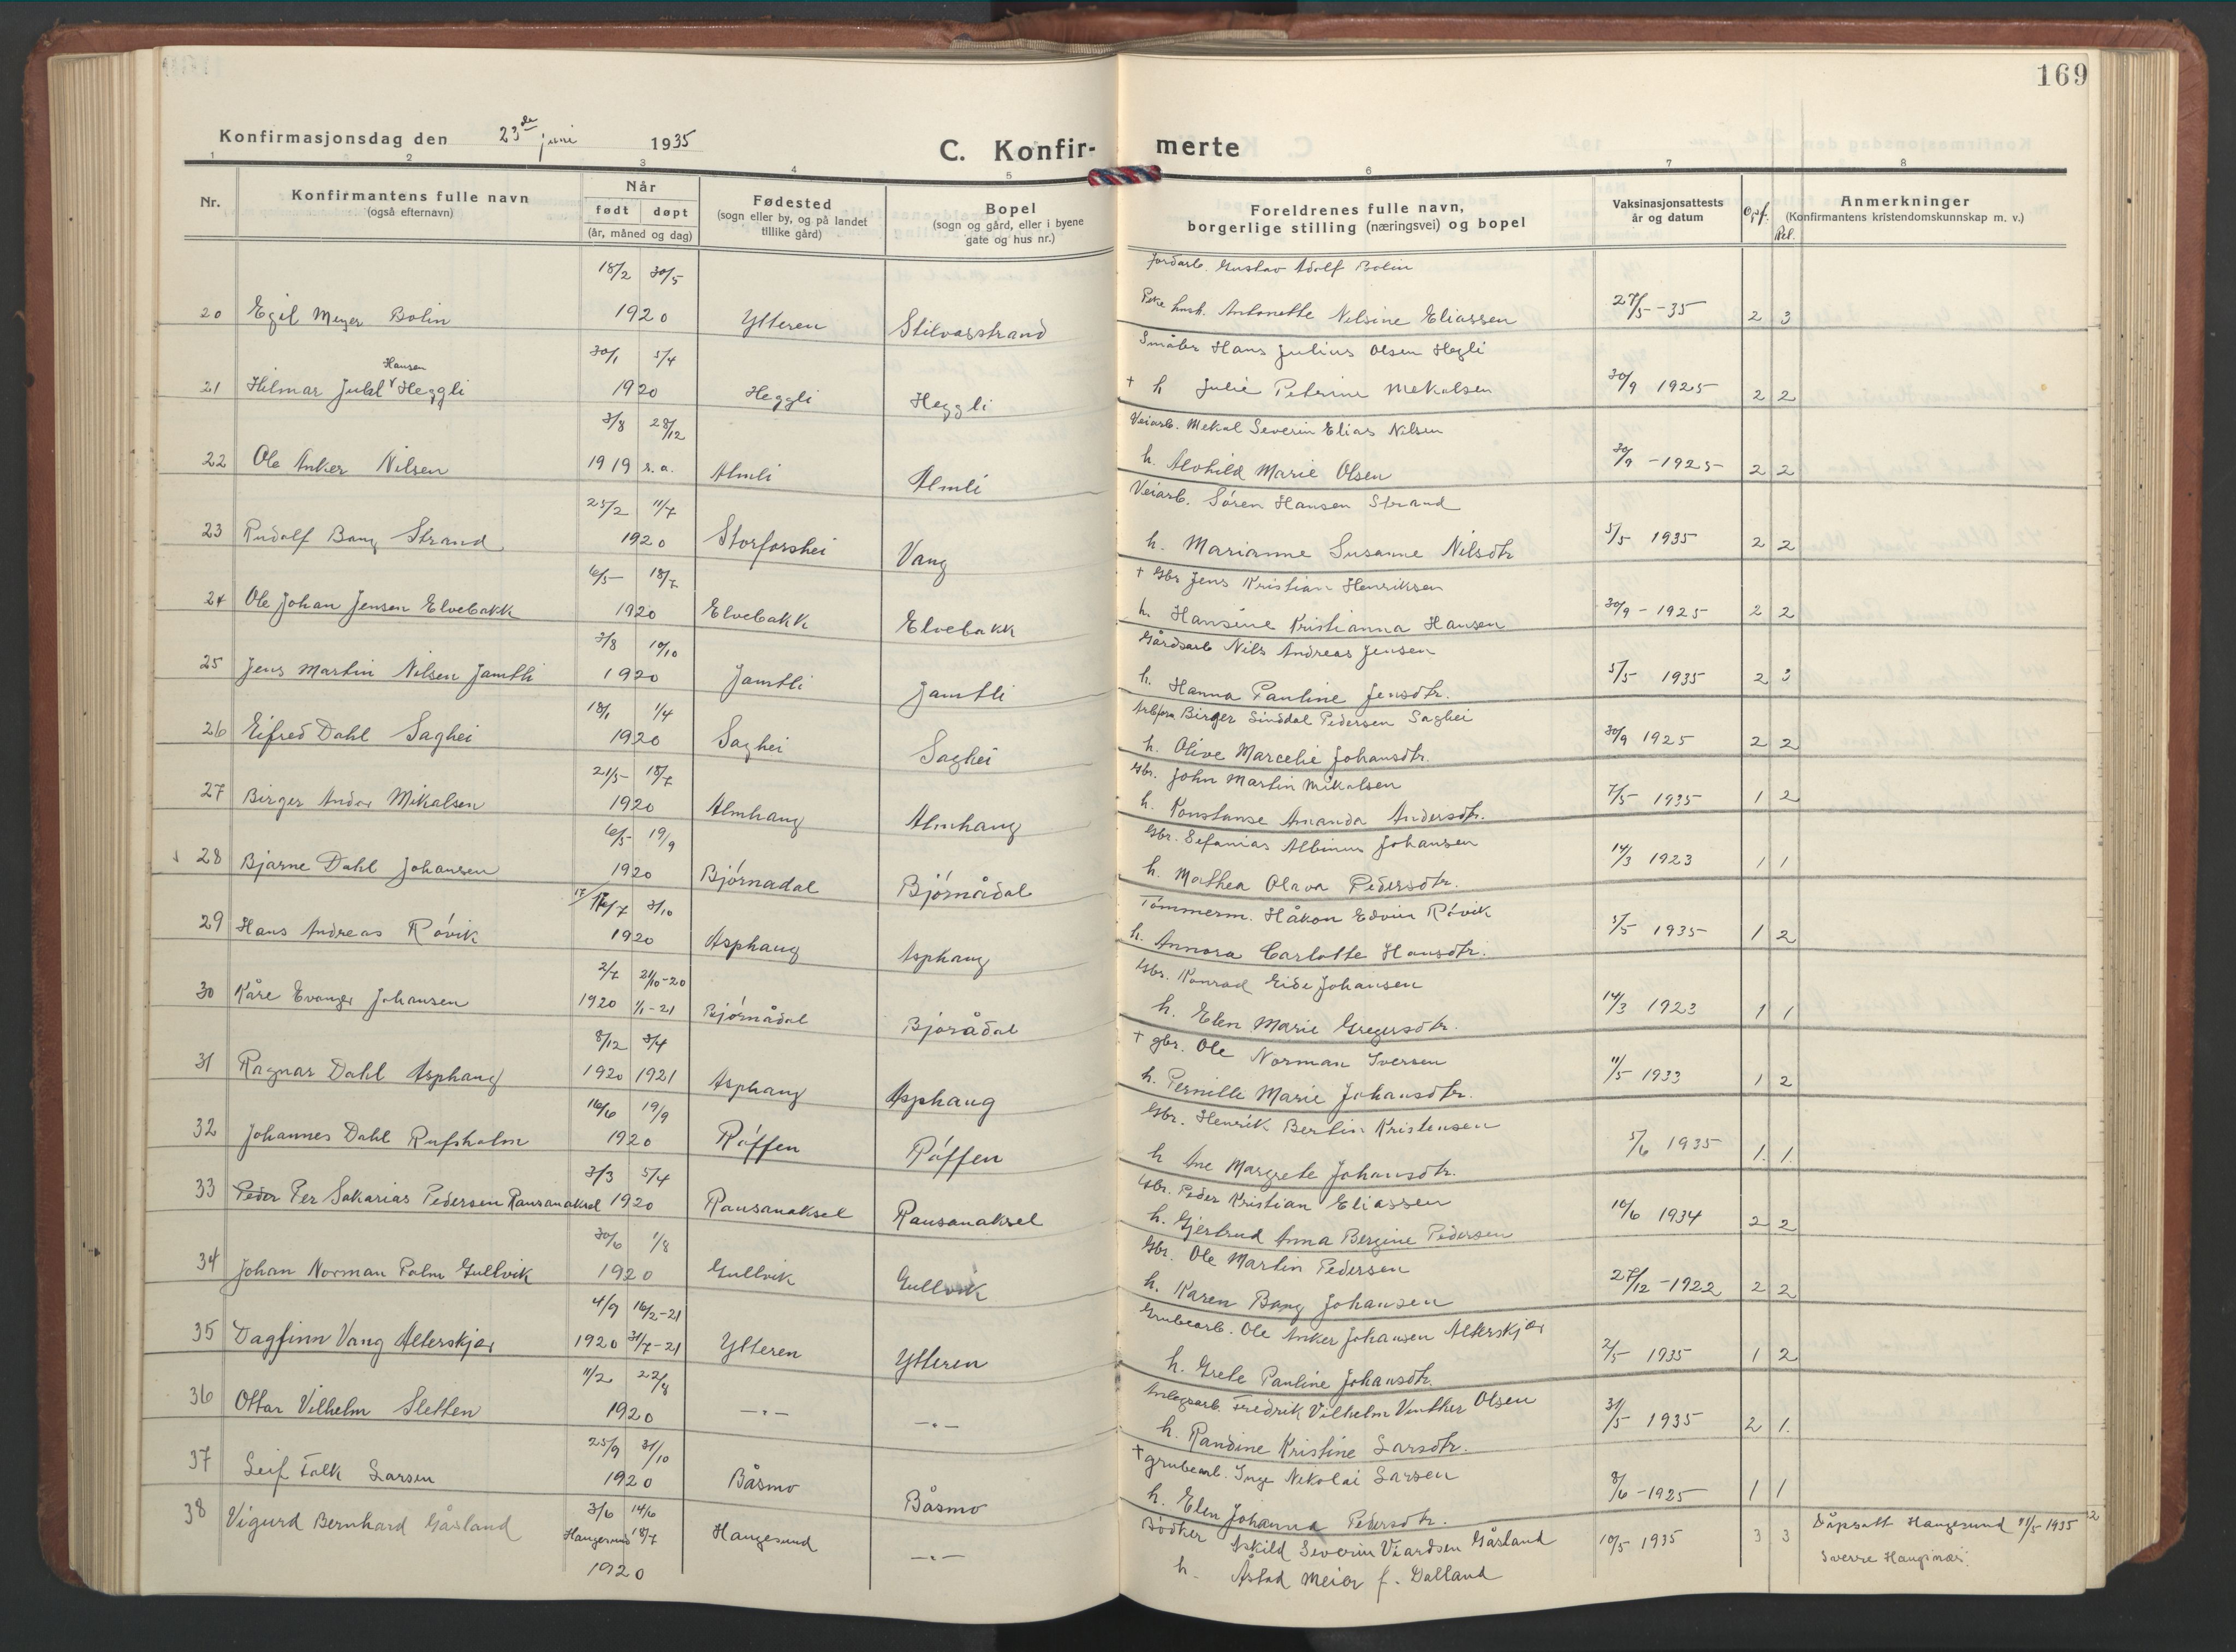 169
Konfirmasjonsdag den 23de juni 1935
C. Konfir- merte
1 2 3 4 5 6 7 8
Nr. Konfirmantens fulle navn (også efternavn) Når født døpt (år, måned og dag) Fødested (sogn eller by, og på landet tillike gård) Bopel (sogn og gård, eller i byene gate og hus nr.) Foreldrenes fulle navn, borgerlige stilling (næringsvei) og bopel Vaksinasjonsattests år og datum Opf. Rel. Anmerkninger (Konfirmantens kristendomskunnskap m. v.)
18/2 30/5 Jordarb. Gustav Adolf Bolin
20 Egil Meyer Bolin 1920 Ytteren Stilvasstrand Antonette Nilsine Eliassen 27/5-35 2 3
Hansen 30/1 5/4 Småbr Hans Julius Olsen Hegli
21 Hilmar Juhl Heggli 1920 Heggli Heggli + h Julie Petrine Mekalsen 30/9 1925 2 2
3/8 28/12 Veiarb. Mekal Severin Elias Nilsen
22 Ole Anker Nilsen 1919 s.a. Almli Almli h. Alvhild Marie Olsen 30/9-1925 2 2
25/2 11/7 Veiarb. Sören Hansen Strand
23 Rudolf Bang Strand 1920 Storforshei Vang h. Marianne Susanne Nilsdtr 5/5 1935 2 2
6/5 18/7 + Gbr Jens Kristian Henriksen
24 Ole Johan Jensen Elvebakk 1920 Elvebakk Elvebakk h. Hansine Kristianna Hansen 30/9-1925 2 2
3/8 10/10 Gårdsarb Nils Andreas Jensen
25 Jens Martin Nilsen Jamtli 1920 Jamtli Jamtli h. Hanna Pauline Jensdtr. 5/5 1935 2 3
18/1 1/4 Birger Sinddal Pedersen Saghei
26 Eifred Dahl Saghei 1920 Saghei Saghei h. Olive Marcelie Johansdtr. 30/9 1925 2 2
21/5 18/7 Gbr. John Martin Mikalsen
27 Birger Andor Mikalsen 1920 Almhaug Almhaug h. Konstanse Amanda Andersdtr. 7/5 1935 1 2
6/5 19/9 Gbr. Sefanias Albinus Johansen
28 Bjarne Dahl Johansen 1920 Björnadal Björnådal h. Mathea Olava Pedersdtr. 14/3 1923 1 1
3/10 Tömmerm. Håkon Edvin Rövik
29 Hans Andreas Rövik 1920 Asphaug Asphaug h. Annora Carlotte Hansdtr. 5/5 1935 1 2
2/7 21/10-20 Gbr. Konrad Eide Johansen
30 Kåre Evanger Johansen 1920 1/1-21 Björnådal Bjorådal h. Elen Marie Gregersdtr. 14/3 1923 1 1
8/12 3/4 + gbr. Ole Norman Iversen
31 Ragnar Dahl Asphaug 1920 1921 Asphaug Asphaug h. Pernille Marie Johansdtr. 11/5 1933 1 2
16/6 19/9 Gbr. Henrik Bertin Kristensen
32 Johannes Dahl Rufsholm 1920 Röffen Röffen h Ane Margrete Johansdtr. 5/6 1935 1. 1.
3/3 5/4 Gbr. Peder Kristian Eliassen
33 Peder Per Sakarias Pedersen Rausanaksel 1920 Rausanaksel Rausanaksel h. Gjertrud Anna Bergine Pedersen 10/6 1934 2 2
30/6 1/8 Gbr. Ole Martin Pedersen
34 Johan Norman Palm Gullvik 1920 Gullvik Gullvik h. Karen Bang Johansen 27/12-1922 2 2
4/9 16/2-21 Grubearb. Ole Anker Johansen Alterskjær
35 Dagfinn Vang Alterskjær 1920 31/7-21 Ytteren Ytteren h. Grete Pauline Johansdtr. 2/5 1935 1 2
11/2 22/8 Anlegsarb. Fredrik Vilhelm Vinther Olsen
36 Ottar Vilhelm Sletten 1920 -"- -"- h. Randine Kristine Larsdtr. 31/5 1935 2 1.
25/9 31/10 + grubearb. Inge Nikolai Larsen
37 Leif Falk Larsen 1920 Båsmo Båsmo h. Elen Johanna Pedersdtr. 8/6-1925 1 1
3/6 14/6 Bödker Askild Severin Viardsen Gåsland Dåpsatt Haugesund 11/5 1935
38 Vigurd Bernhard Gåsland Haugesund 18/7 1920 Haugesund -"- h. Åstad Meier f. Dalland 10/5 1935 3 3 Sverre